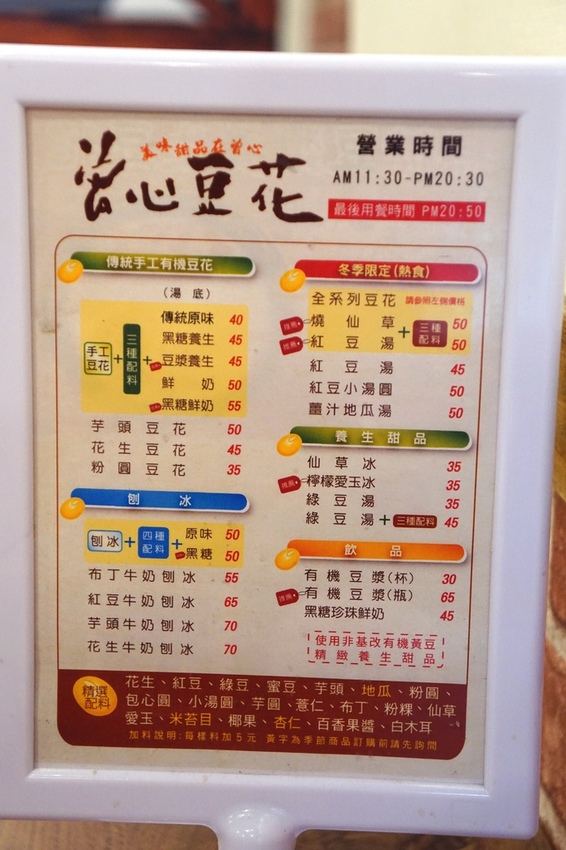 美味甜品在曾心
曾心豆花
營業時間
AM11:30-PM20:30
最後用餐時間 PM20:50
傳統手工有機豆花
(湯底)
手工豆花+三種配料+
傳統原味 40
黑糖養生 45
豆漿養生 45
鮮奶 50
黑糖鮮奶 55
芋頭豆花 50
花生豆花 45
粉圓豆花 35
刨冰
刨冰+四種配料+
原味 50
黑糖 50
布丁牛奶刨冰 55
紅豆牛奶刨冰 65
芋頭牛奶刨冰 70
花生牛奶刨冰 70
冬季限定(熱食)
全系列豆花 請參照左側價格
推薦 燒仙草+三種配料 50
推薦 紅豆湯+三種配料 50
紅豆湯 45
紅豆小湯圓 50
薑汁地瓜湯 50
養生甜品
仙草冰 35
推薦 檸檬愛玉冰 35
綠豆湯 35
綠豆湯+三種配料 45
飲品
有機豆漿(杯) 30
推薦 有機豆漿(瓶) 65
黑糖珍珠鮮奶 45
使用非基改有機黃豆
精緻養生甜品
精選配料
花生、紅豆、綠豆、蜜豆、芋頭、地瓜、粉圓、
包心圓、小湯圓、芋圓、薏仁、布丁、粉粿、仙草
愛玉、米苔目、椰果、杏仁、百香果醬、白木耳
加料說明:每樣料加5元 黃字為季節商品訂購前請先詢問